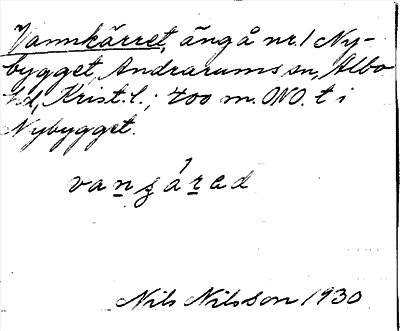 Vannkärret, ängå nr 1 Ny-
bygget, Andrarums sn, Albo
hd, Krist. l.; 700 m. ONO. t i
Nybygget.
Nils Nilsson 1930